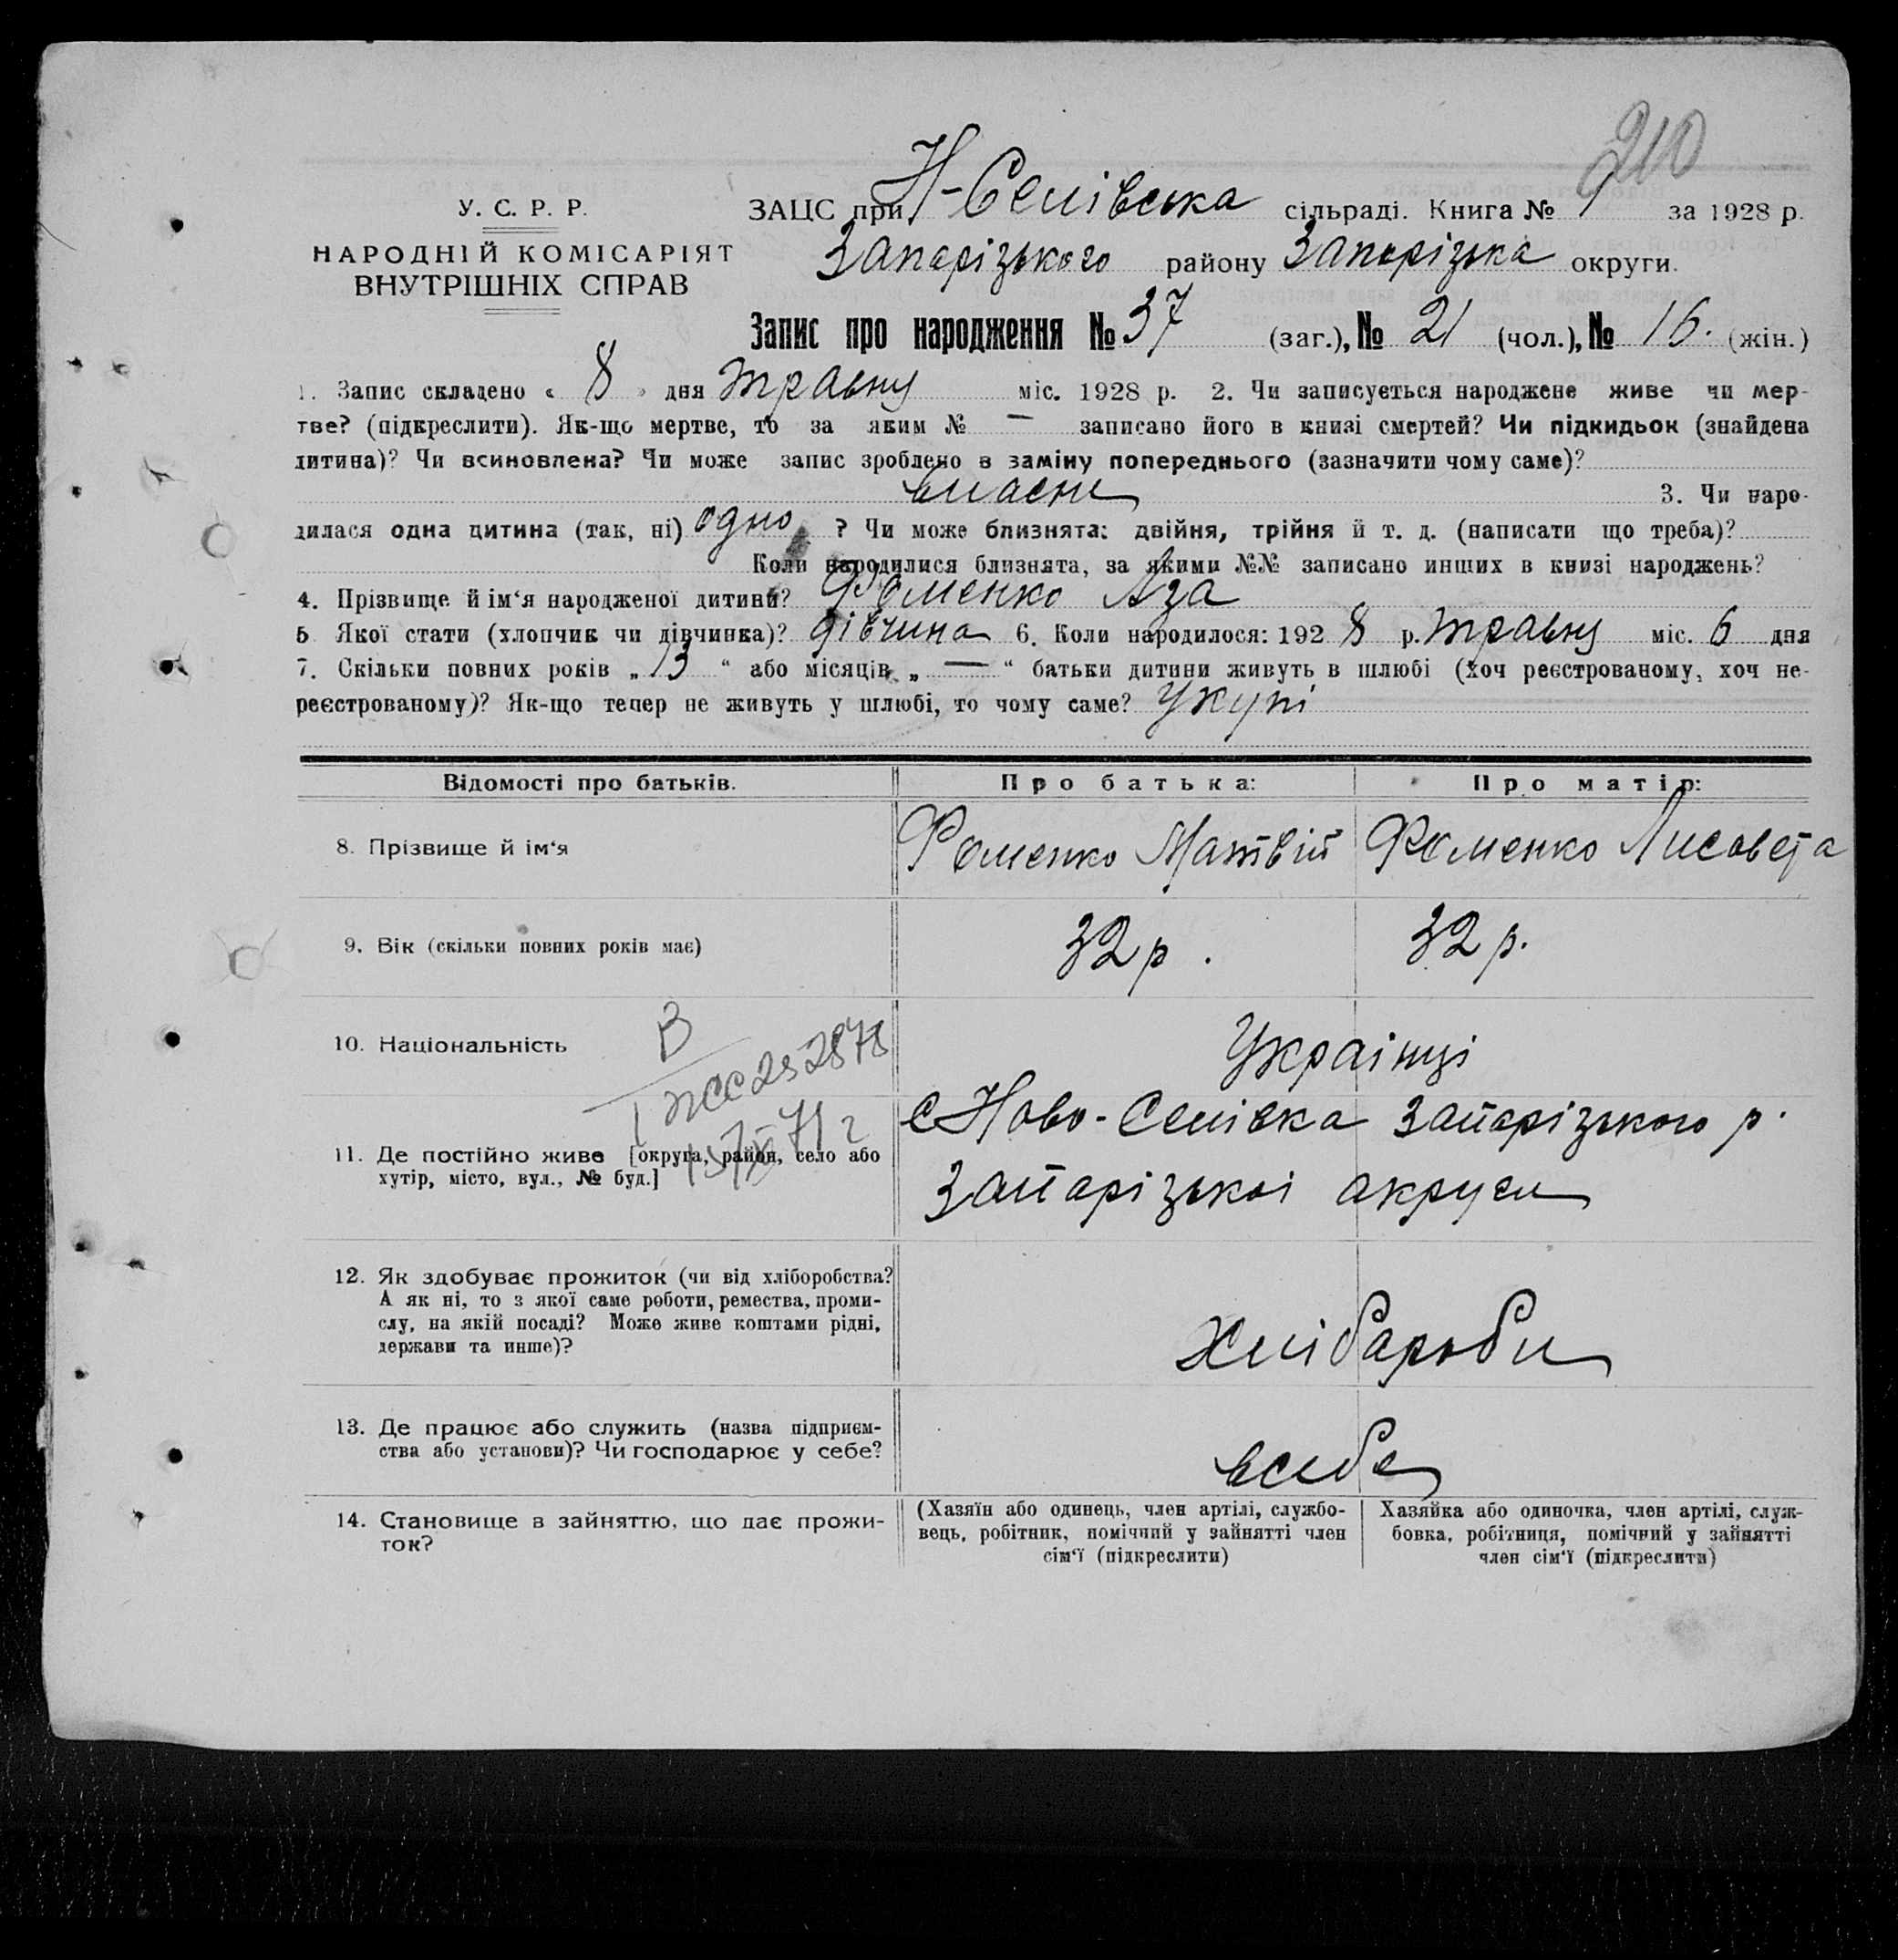 210
У. С. Р. Р.
НАРОДНІЙ КОМІСАРІЯТ
ВНУТРІШНІХ СПРАВ
ЗАЦС при Н-Селівська сільраді. Книга № 1 за 1928 р.
Запарізького району Запорізька округи.
Запис про народження № 37 (заг.), № 21 (чол.), № 16. (жін.)
1. Запис складено « 8 » дня травну міс. 1928 р. 2. Чи записується народжене живе чи мер-
тве? (підкреслити). Як-що мертве, то за яким № — записано його в книзі смертей? Чи підкидьок (знайдена
дитина)? Чи всиновлена? Чи може запис зроблено в заміну попереднього (зазначити чому саме)?
власне 3. Чи наро-
дилася одна дитина (так, ні) одно ? Чи може близнята: двійня, трійня й т. д. (написати що треба)?
Коли народилися близнята, за якими №№ записано инших в книзі народжень?
4. Прізвище й ім‘я народженої дитини? Фоменко Аза
5 Якої стати (хлопчик чи дівчинка)? дівчина 6. Коли народилося: 192 8 р. травну міс. 6 дня
7. Скільки повних років „ 13 “ або місяців „ — “ батьки дитини живуть в шлюбі (хоч реєстрованому, хоч не-
реєстрованому)? Як-що тепер не живуть у шлюбі, то чому саме? Укупі
Відомості про батьків. Про батька: Про матір:
8. Прізвище й ім‘я Фоменко Матвій Фоменко Лисавета
9. Вік (скільки повних років має) 32 р. 32 р.
10. Національність Українці
В
11. Де постійно живе [округа, район, село або
хутір, місто, вул., № буд.]
с Ново-Селівка Запарізького р.
Запарізькоі акруги
12. Як здобуває прожиток (чи від хліборобства?
А як ні, то з якої саме роботи, ремества, проми-
слу, на якій посаді? Може живе коштами рідні,
держави та инше)?
Хлібароби
13. Де працює або служить (назва підприєм-
ства або установи)? Чи господарює у себе?
всебе
14. Становище в зайняттю, що дає прожи-
ток?
(Хазяїн або одинець, член артілі, службо-
вець, робітник, помічний у зайнятті член
сім‘ї (підкреслити)
Хазяйка або одиночка, член артілі, служ-
бовка, робітниця, помічний у зайнятті
член сім‘ї (підкреслити)